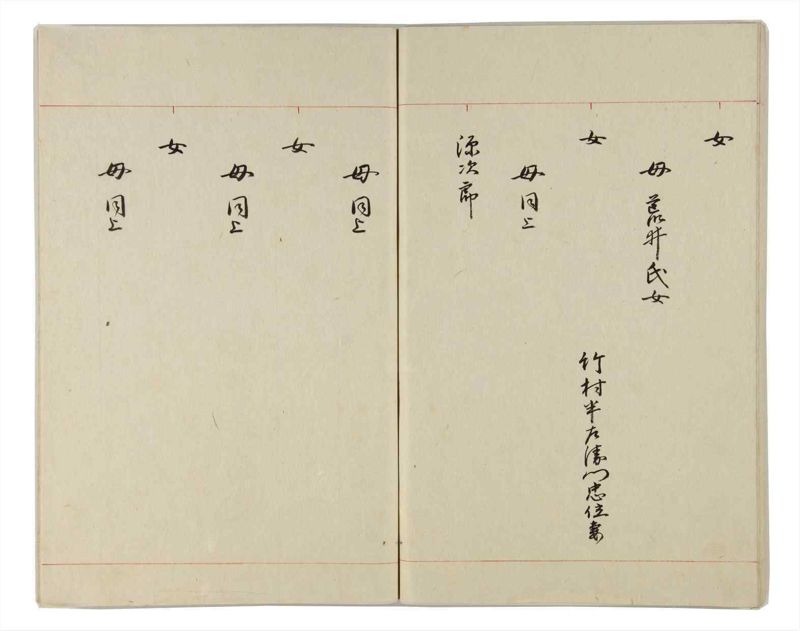 女
母 荒井氏女
女 竹村半左衛門忠位妻
母 同上
源次郎
母 同上
女
母 同上
女
母 同上